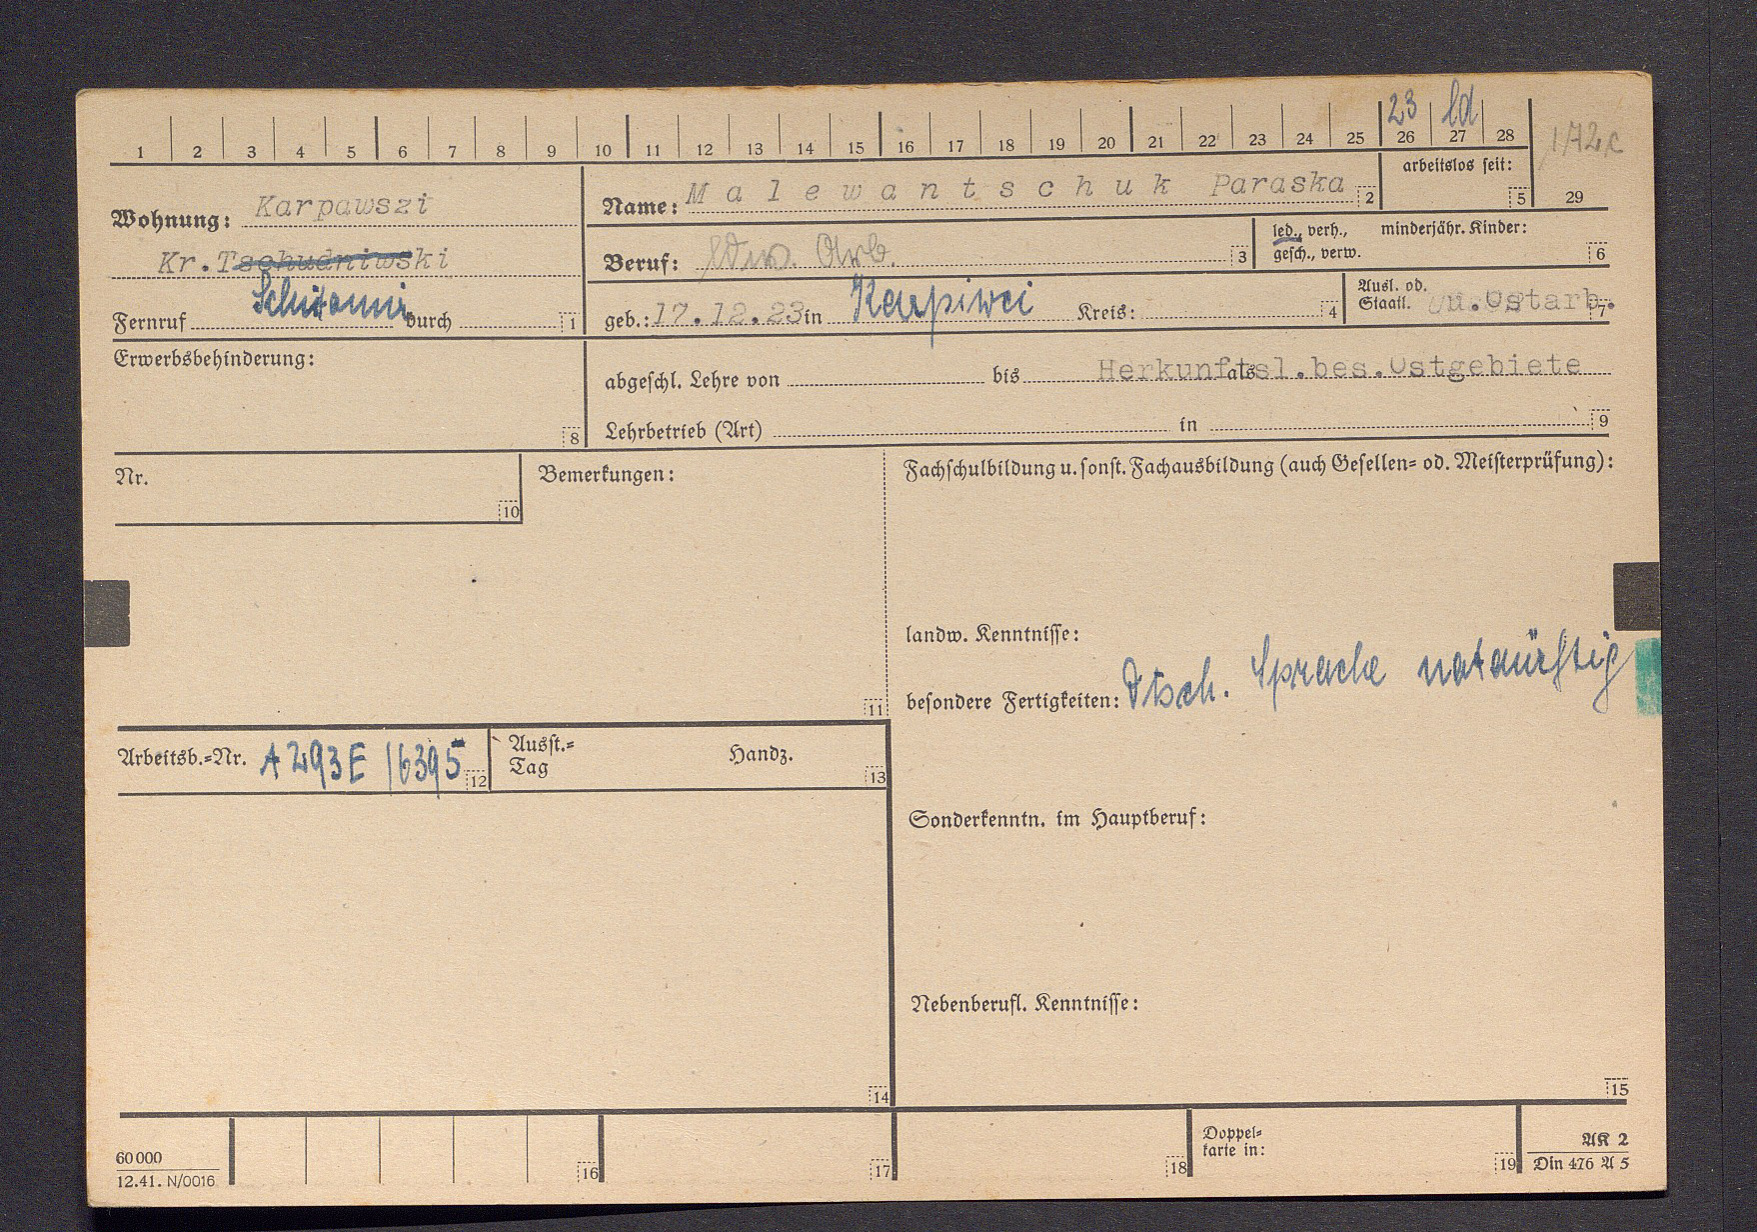 23 ld
1 2 3 4 5 6 7 8 9 10 11 12 13 14 15 16 17 18 19 20 21 22 23 24 25 26 27 28
29
Wohnung: Karpawszi
Kr. Tschudniwski
Schitomir
Fernruf durch 1
Name: Malewantschuk Paraska 2
arbeitslos seit: 5
Beruf: Arb. 3
led., verh., gesch., verw.
minderjähr. Kinder: 6
geb.: 17.12.23 in Karpiwci Kreis: 4
Ausl. od. Staatl. u.Ostarb. 7
Erwerbsbehinderung: 8
abgeschl. Lehre von bis als Herkunftsl.bes.Ostgebiete
Lehrbetrieb (Art) in 9
Nr. 10
Bemerkungen: 11
Fachschulbildung u. sonst. Fachausbildung (auch Gesellen= od. Meisterprüfung):
landw. Kenntnisse:
besondere Fertigkeiten: Dtsch. Sprache notdürftig
Arbeitsb.=Nr. A 293 E 16395 12
Ausst.= Tag Handz. 13
Sonderkenntn. im Hauptberuf:
Nebenberufl. Kenntnisse:
14
15
60000
12.41. N/0016
16
17
18
Doppel=
karte in:
19
AK 2
Din 476 A 5